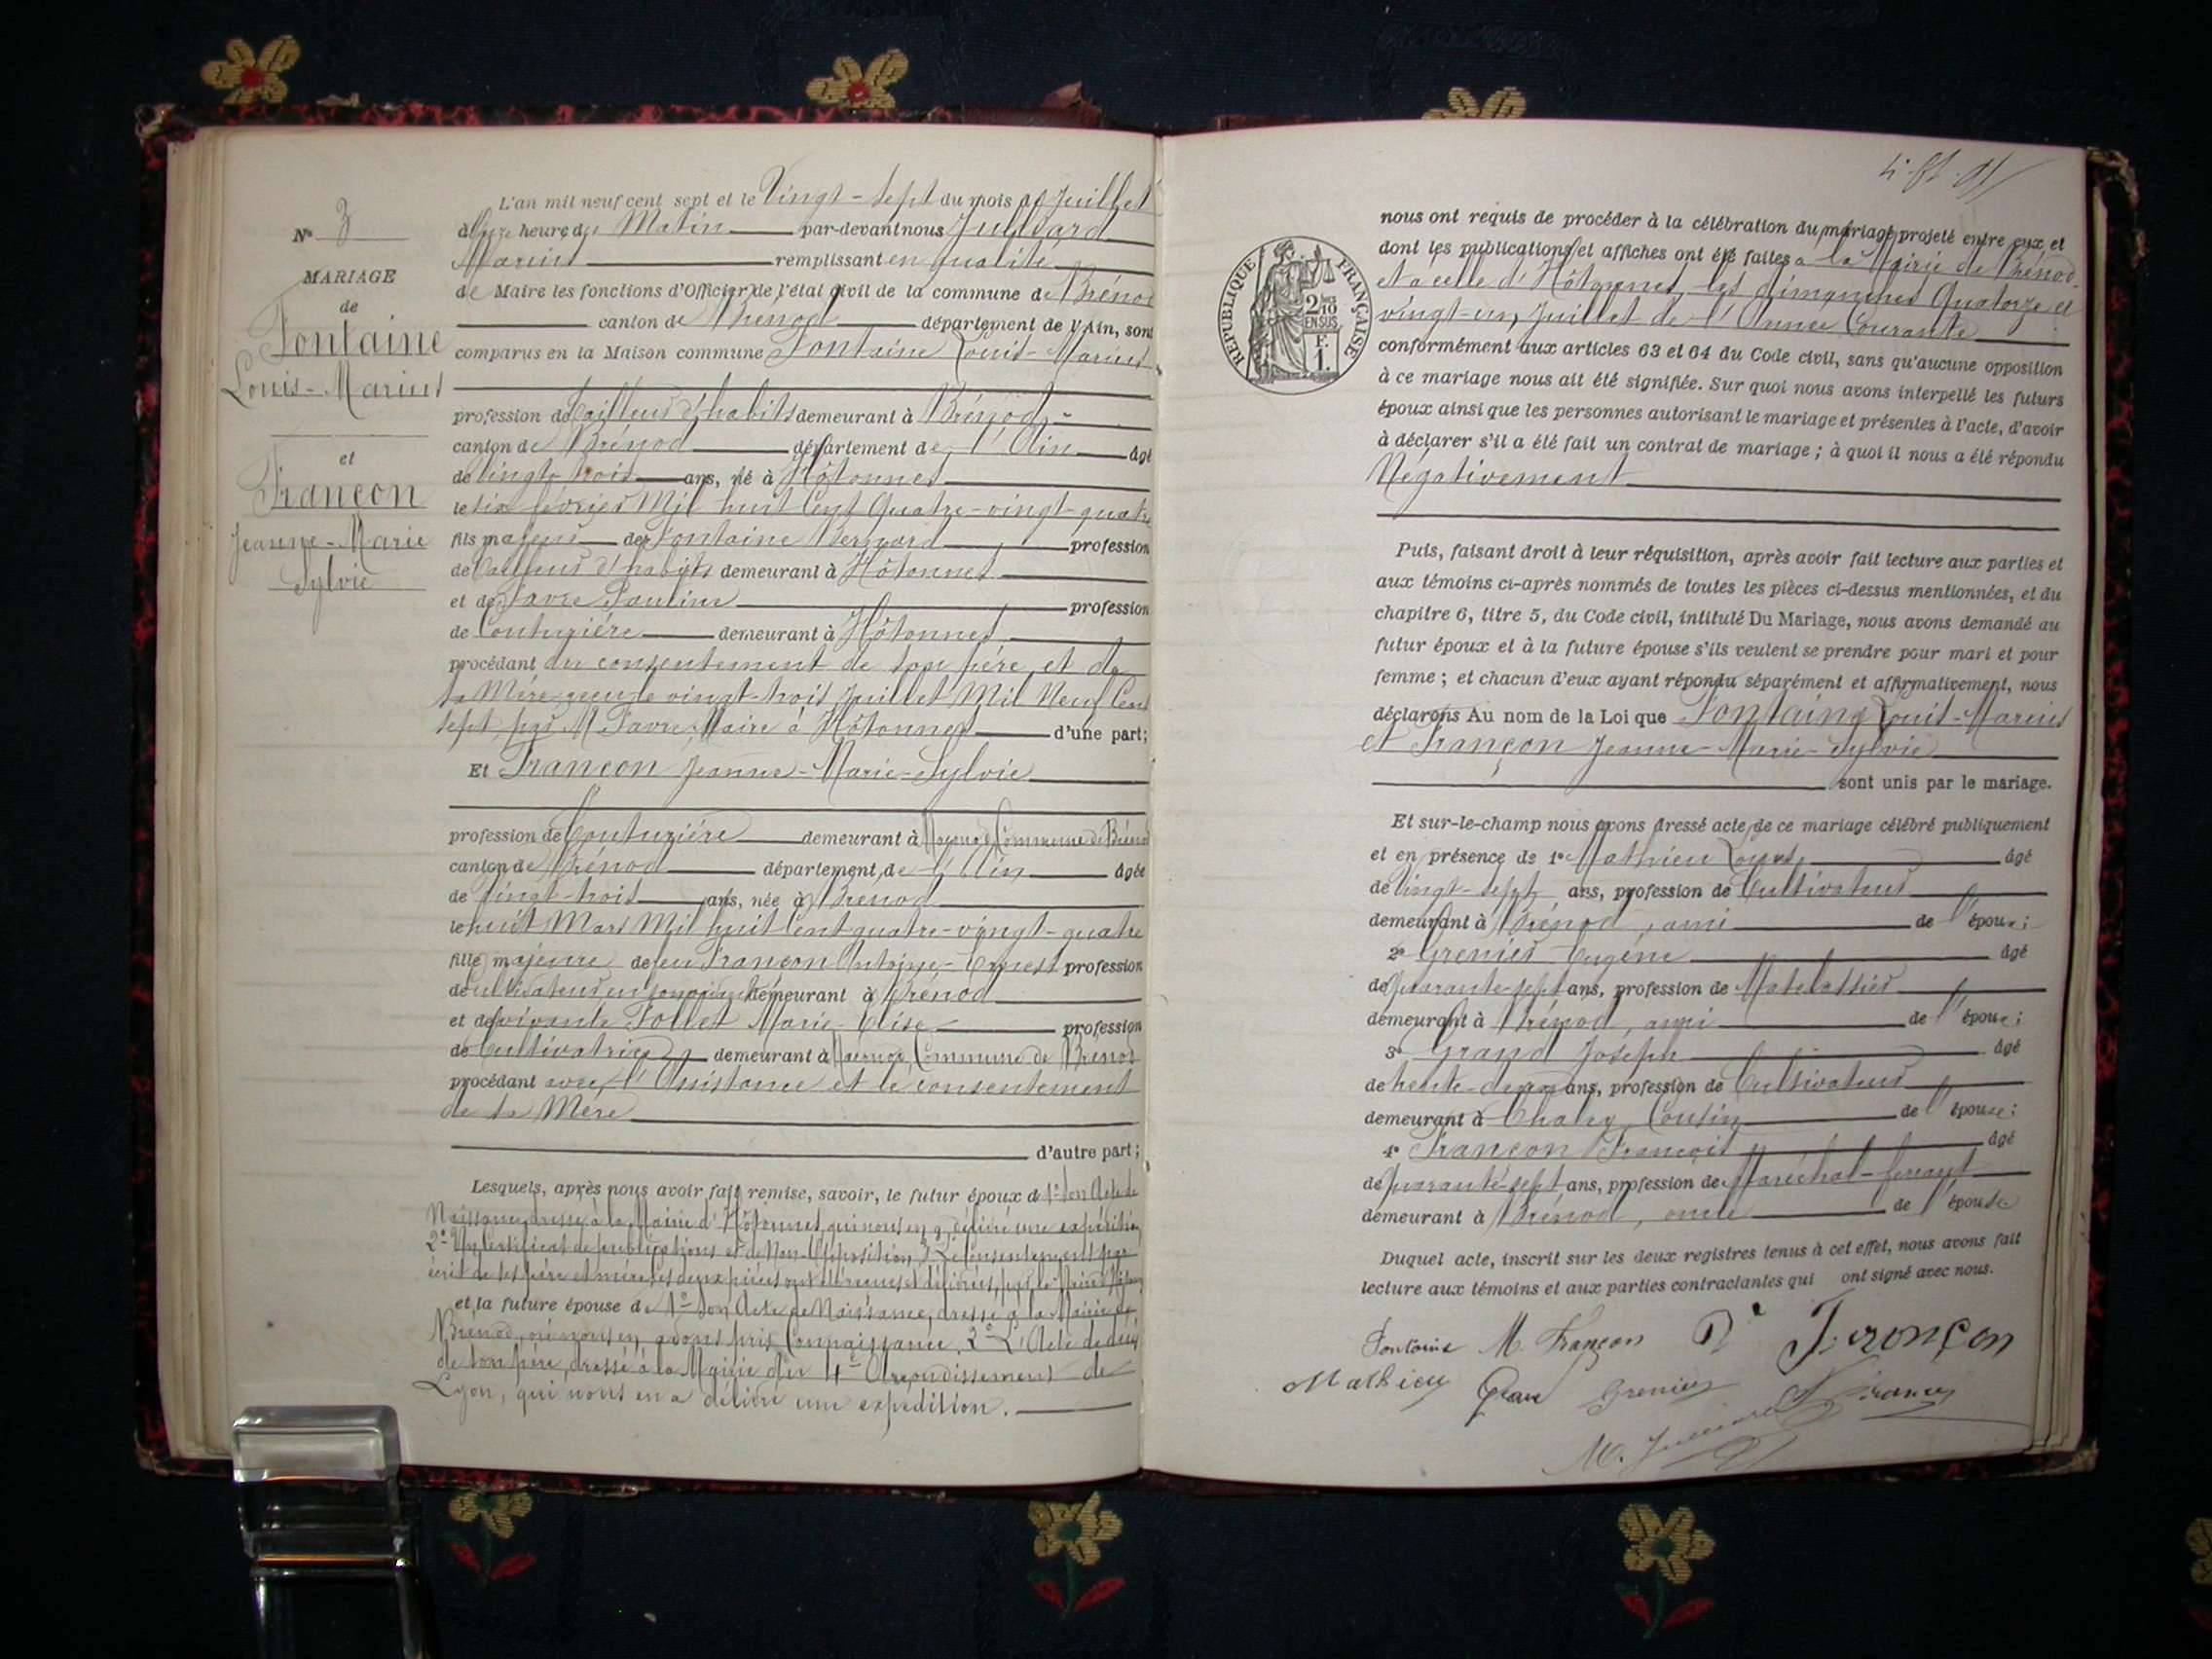 N° 3
MARIAGE
de
Fontaine
Louis-Marius
et
Françon
Jeanne-Marie
Sylvie
L'an mil neuf cent sept et le Vingt-sept du mois de Juillet
à Onze heures du Matin par-devant nous Julliard
Marius remplissant en qualité
de Maire les fonctions d'Officier de l'état civil de la commune de Brénod
canton de Brénod département de l'Ain, sont
comparus en la Maison commune Fontaine Louis-Marius
profession de Tailleur d'habits demeurant à Brénod
canton de Brénod département de l'Ain âgé
de Vingt-trois ans, né à Hôtonnes
le six février Mil huit Cent Quatre-vingt-quatre
fils majeur de Fontaine Bernard profession
de Tailleur d'habits demeurant à Hôtonnes
et de Favre Pauline profession
de Couturiére demeurant à Hôtonnes
procédant du consentement de son pére et de
sa Mére reçu le vingt-trois Juillet Mil Neuf Cent
sept par M Favre, Maire à Hôtonnes d'une part;
Et Françon Jeanne-Marie-Sylvie
profession de Couturiére demeurant à Commune de Brénod
canton de Brénod département de l'Ain âgée
de Vingt-trois ans, née à Brénod
le huit Mars Mil huit Cent quatre-vingt-quatre
fille majeure de feu Françon Antoine-Ernest profession
de cultivateur en demeurant à Brénod
et de vivante Follet Marie-Elise profession
de Cultivatrice demeurant à Commune de Brénod
procédant avec l'Assistance et le consentement
de sa Mére
d'autre part;
Lesquels, après nous avoir fait remise, savoir, le futur époux de 1° Son Acte de
Naissance, dressé à la Mairie d'Hôtonnes, qui nous en a délivré une expédition,
2° Un Certificat de publications et de Non-Opposition, 3° Le Consentement par
écrit de ses pére et mére, les deux piéces ont été reçues et délivrées, par le Maire d'Hôtonnes
et la future épouse de 1° Son Acte de Naissance, dressé à la Mairie de
Brénod, où nous en avons pris Connaissance, 2° L'Acte de décés
de son pére, dressé à la Mairie du 4e Arrondissement de
Lyon, qui nous en a délivré une expédition.
RÉPUBLIQUE FRANÇAISE
2/10
EN SUS
F.
1.
nous ont requis de procéder à la célébration du mariage projeté entre eux et
dont les publications et affiches ont été faites à la Mairie de Brénod
et à celle d'Hôtonnes, les dimanches Quatorze et
vingt-un, Juillet de l'Année Courante
conformément aux articles 63 et 64 du Code civil, sans qu'aucune opposition
à ce mariage nous ait été signifiée. Sur quoi nous avons interpellé les futurs
époux ainsi que les personnes autorisant le mariage et présentes à l'acte, d'avoir
à déclarer s'il a été fait un contrat de mariage; à quoi il nous a été répondu
Négativement
Puis, faisant droit à leur réquisition, après avoir fait lecture aux parties et
aux témoins ci-après nommés de toutes les pièces ci-dessus mentionnées, et du
chapitre 6, titre 5, du Code civil, intitulé Du Mariage, nous avons demandé au
futur époux et à la future épouse s'ils veulent se prendre pour mari et pour
femme; et chacun d'eux ayant répondu séparément et affirmativement, nous
déclarons Au nom de la Loi que Fontaine Louis-Marius
et Françon Jeanne-Marie-Sylvie
sont unis par le mariage.
Et sur-le-champ nous avons dressé acte de ce mariage célébré publiquement
et en présence de 1° Mathieu Louis âgé
de Vingt-sept ans, profession de Cultivateur
demeurant à Brénod, ami de l'époux;
2° Grenier Eugéne âgé
de quarante-sept ans, profession de Matelassier
demeurant à Brénod, ami de l'époux;
3° Grand Joseph âgé
de trente-deux ans, profession de Cultivateur
demeurant à Chaley Cousin de l'épouse;
4° Françon François âgé
de quarante-sept ans, profession de Maréchal-ferrant
demeurant à Brénod, oncle de l'épouse
Duquel acte, inscrit sur les deux registres tenus à cet effet, nous avons fait
lecture aux témoins et aux parties contractantes qui ont signé avec nous.
Fontaine M. Françon Françon
Mathieu Grenier